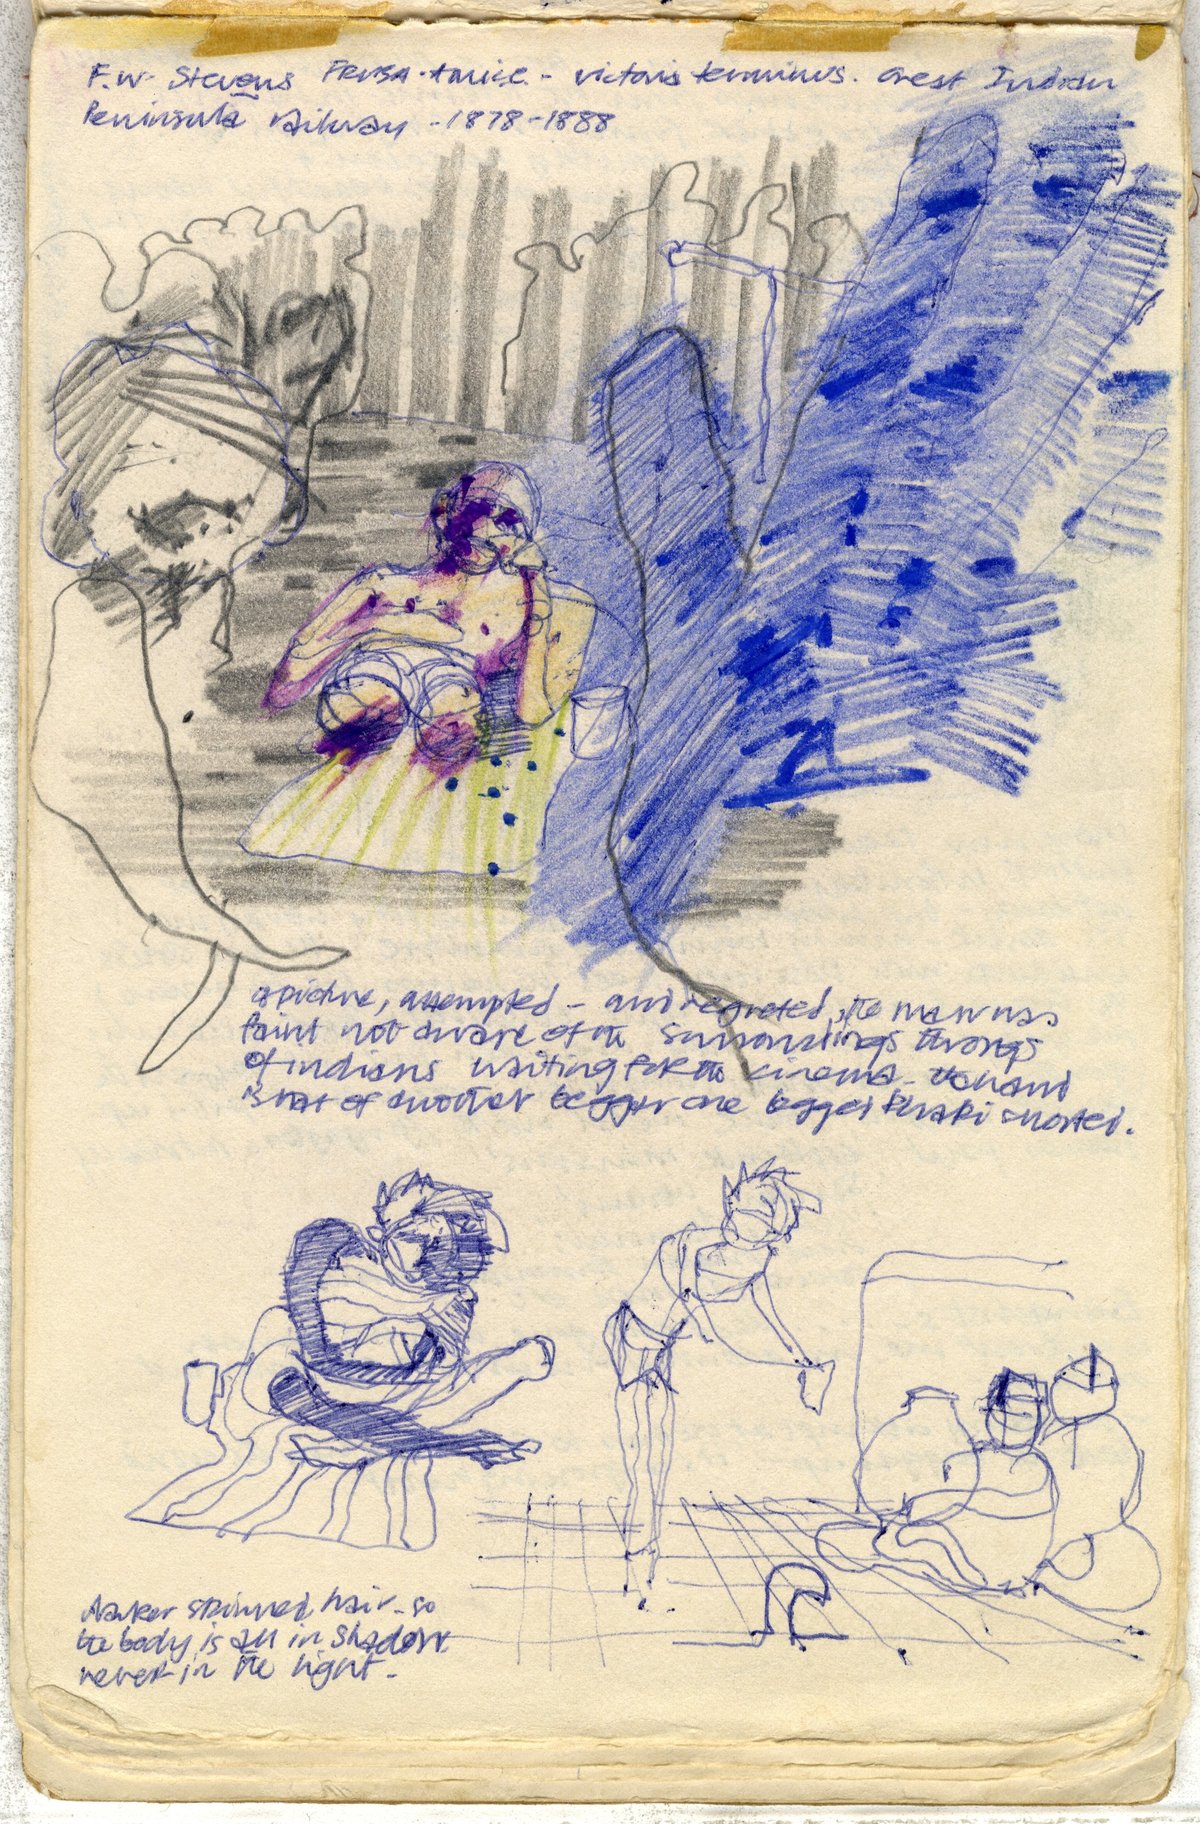 F.W. Stevens FRIBA · · victoria terminus. Great Indian
Peninsula railway - 1878-1888
a picture, attempted - and regretted, the man was
faint not aware of the surroundings throngs
of indians waiting for the cinema -
is that of another beggar one legged khaki shorted.
darker skinned, hair - so
the body is all in shadow
never in the light -